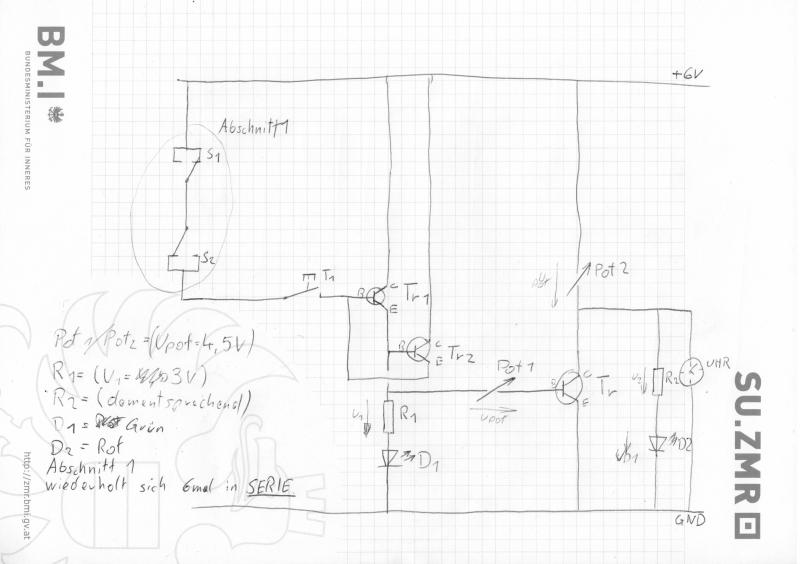 BM.I
BUNDESMINISTERIUM FÜR INNERES
+6V
Abschnitt 1
S1
S2
T1
B
C
Tr1
E
B
C
E
Tr2
Pot 2
Pot 1
Upot
B
C
E
Tr
U2
R2
UHR
U1
R1
D1
D2
GND
Pot 1/Pot2 = (Upot=4,5V)
R1 = (U1 = 3V)
R2 = (dementsprechend)
D1 = Grün
D2 = Rot
Abschnitt 1
wiederholt sich 6mal in SERIE
http://zmr.bmi.gv.at
SU.ZMR